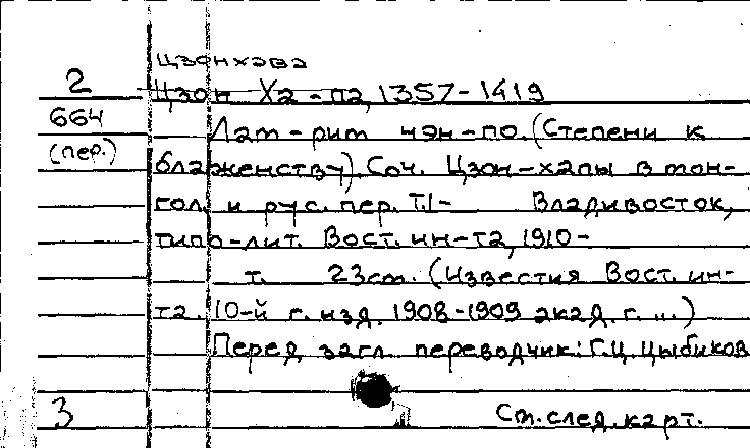 Цзонхава
2
Цзон Ха-па, 1357-1419
664
Лам-рим чэн-по. (Степени к
(пер.)
блаженству). Соч. Цзон-хапы в мон-
гол. и рус. пер. Т.1- Владивосток,
типо-лит. Вост. ин-та, 1910-
т. 23см. (Известия Вост. ин-
та. 10-й г. изд. 1908-1909 акад. г. ...)
Перед загл. переводчик: Г.Ц. Цыбиков
3
См. след. карт.